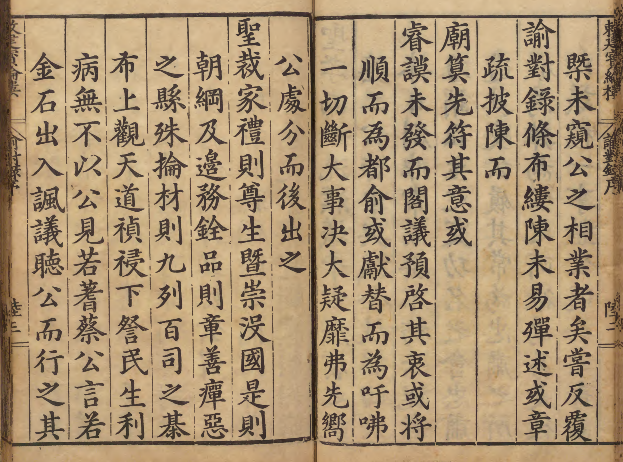 槩未窺公之相業者矣嘗反覆
諭對錄條布縷陳未易殫述或章
疏披陳而
廟筭先符其意或
睿謨未發而閣議預啓其衷或將
順而為都俞或獻替而為吁咈
一切斷大事决大疑靡弗先嚮
公處分而後出之
聖裁家禮則尊生暨崇沒國是則
朝綱及邉務銓品則章善癉惡
之縣殊掄材則九列百司之棊
布上觀天道禎祲下詧民生利
病無不以公見若蓍蔡公言若
金石出入諷議聽公而行之其